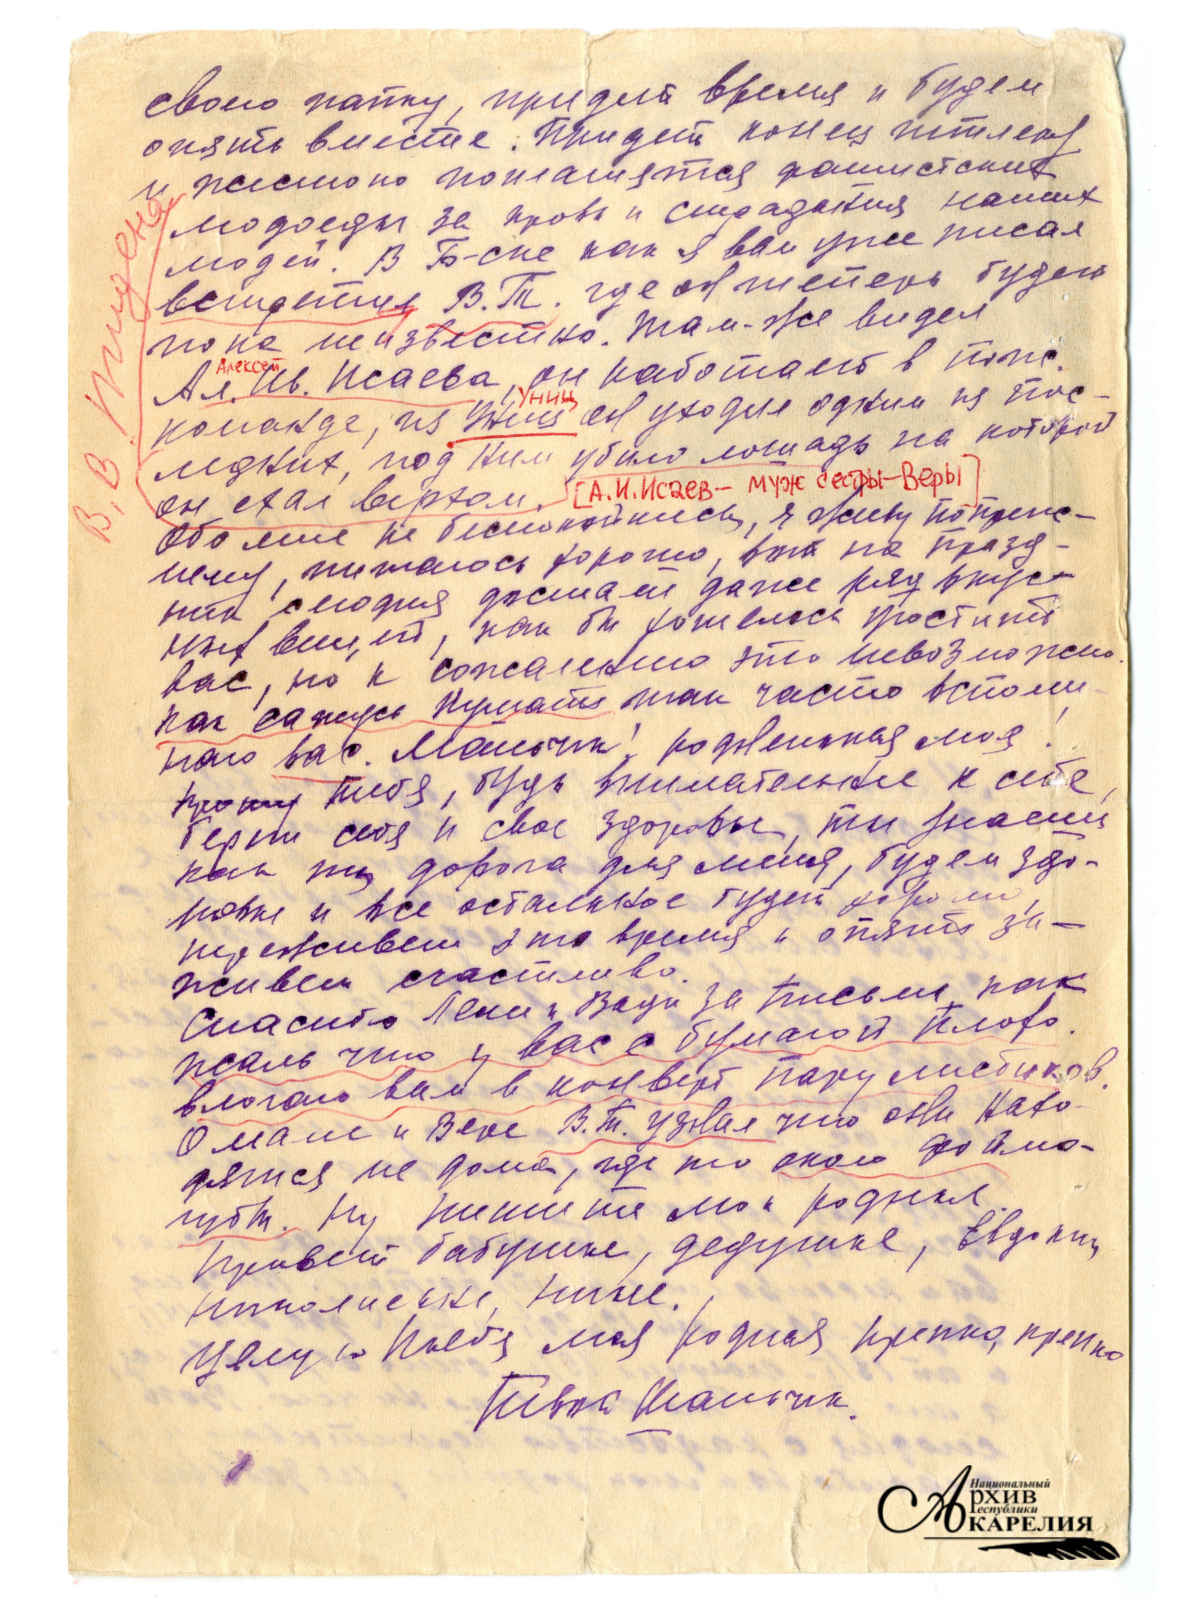 своего папку, придет время и будем
опять вместе. Придет конец гитлеру
и жестоко поплатятся фашистские
людоеды за кровь и страдания наших
людей. В Б-ске как я вам уже писал
встретил В.Т. где он теперь будет
пока неизвестно. Там-же видел
Алексей
Ал. Ив. Исаева, он работает в пож.
Униц
команде, из Униц он уходил одним из пос-
ледних, под ним убило лошадь на которой
он ехал верхом. [А.И.Исаев – муж сестры – Веры]
В. В.
Обо мне не беспокойтесь, я живу попреж-
нему, питаюсь хорошо, вот на празд-
ник сегодня достали даже ряд вкус-
ных вещей, как бы хотелось угостить
вас, но к сожалению это невозможно.
Как сажусь кушать так часто вспоми-
наю вас. Мальчик! родненькая моя!
прошу тебя, будь внимательнее к себе,
береги себя и свое здоровье, ты знаешь
как ты дорога для меня, будем здо-
ровы и все остальное будет хорошо,
переживем это время и опять за-
живем счастливо.
Спасибо Лени и Вади за письма, как
жаль что у вас с бумагой плохо.
влогаю вам в конверт пару листиков.
О маме и Вере В.Т. узнал что они нахо-
дятся не дома, где то около
губы. Ну пишите мои родные.
Привет бабушке, дедушке, Евдокии
Николаевне, Нине.
Целую тебя моя родная крепко, крепко
Твой Мальчик.
Национальный
Архив
Республики
Карелия